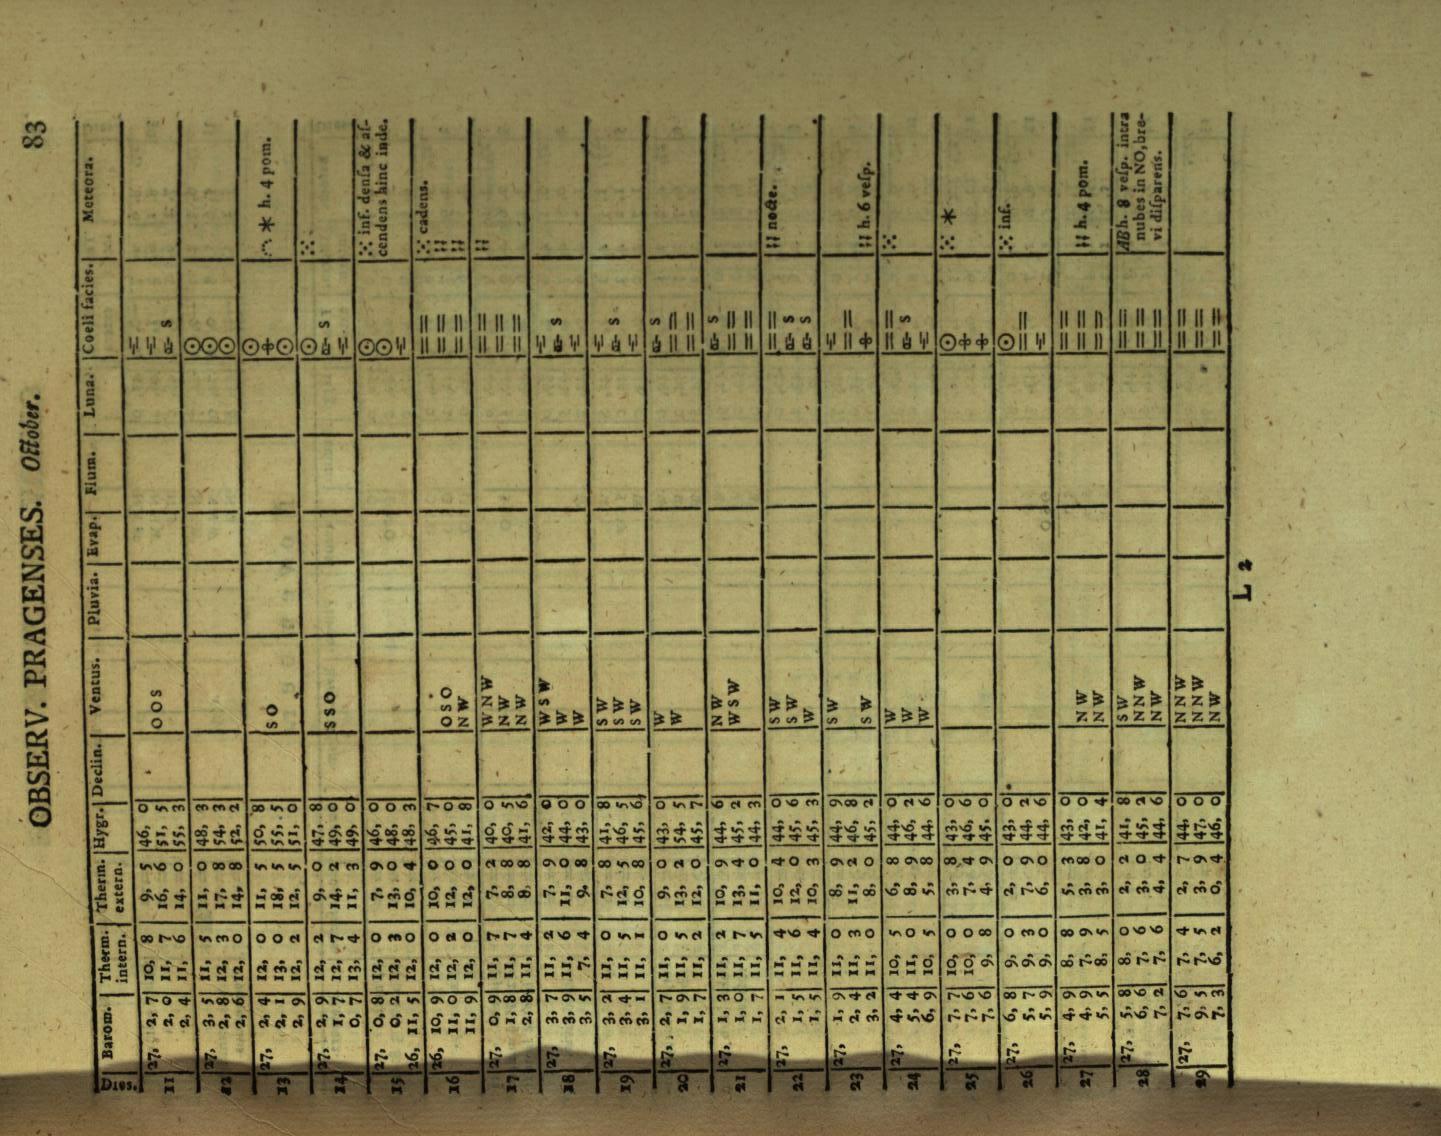 OBSERV. PRAGENSES. October. 83
Dies. Barom. Therm. intern. Therm. extern. Hygr. Declin. Ventus. Pluvia. Evap. Flum. Luna. Coeli facies. Meteora.
27, 2, 7 10, 8 9, 5 46, 0
11 2, 0 11, 7 16, 6 51, 5 O
2, 4 11, 6 14, 0 55, 3 O S S
27, 3, 5 11, 5 11, 0 48, 3 ⊙
12 2, 8 12, 3 17, 8 54, 3 ⊙
2, 6 12, 0 14, 8 52, 2 ⊙
27, 2, 4 12, 0 11, 5 50, 8 ⊙
13 2, 1 13, 0 18, 5 55, 5 S O * h. 4 pom.
2, 9 12, 2 12, 5 51, 0 ⊙
27, 2, 9 12, 2 9, 0 47, 8 ⊙ ⁙
14 1, 7 12, 7 14, 2 49, 0 S S O S
0, 7 13, 4 11, 3 49, 0
27, 0, 8 12, 0 7, 9 46, 0 ⊙ ⁙ inf. densa & as-
15 0, 2 12, 3 13, 0 48, 0 ⊙ cendens hinc inde.
26, 11, 5 12, 0 10, 4 48, 3
26, 10, 9 12, 0 10, 0 46, 7 = ⁙ cadens.
16 11, 0 12, 2 12, 0 45, 0 O S O = ⁝⁝
11, 9 12, 0 12, 0 41, 8 N W = ⁝⁝
27, 0, 9 11, 7 7, 2 40, 0 W N W = ⁝⁝
17 1, 8 11, 7 8, 8 40, 5 N W =
2, 8 11, 4 8, 8 41, 6 N W =
27, 3, 7 11, 2 7, 9 42, 0 W S W
18 3, 9 11, 6 11, 0 44, 0 W S
3, 5 7, 4 9, 8 43, 0 W
27, 3, 2 11, 0 7, 8 41, 8 S W
19 3, 4 11, 5 12, 5 46, 5 S W S
3, 1 11, 1 10, 8 45, 6 S W
27, 2, 7 11, 0 9, 0 43, 0 W S
20 1, 9 11, 5 13, 2 54, 5 W =
1, 7 11, 2 12, 0 45, 7 =
27, 1, 3 11, 2 10, 9 44, 6 N W S
21 1, 0 11, 7 13, 4 45, 2 W S W =
1, 7 11, 5 11, 0 44, 3 =
27, 2, 1 11, 4 10, 4 44, 0 S W = ⁝⁝ nocte.
22 1, 5 11, 6 12, 0 45, 6 S W S
1, 5 11, 4 10, 3 45, 3 W S
27, 1, 9 11, 0 8, 9 44, 9 S W
23 2, 4 11, 3 11, 2 46, 8 =
3, 2 11, 0 8, 0 45, 2 S W ⁝⁝ h. 6 vesp.
27, 4, 4 10, 5 6, 8 44, 0 W = ⁙
24 5, 4 11, 0 8, 9 46, 2 W S
6, 9 10, 5 5, 8 44, 6 W
27, 7, 7 10, 0 3, 8 43, 0 ⊙ ⁙ *
25 7, 6 10, 0 7, 4 46, 6
7, 6 9, 8 4, 9 45, 0
27, 6, 8 9, 0 2, 0 43, 0 ⊙ ⁙ inf.
26 5, 7 9, 3 7, 9 44, 2 =
5, 9 9, 0 6, 0 44, 6
27, 4, 9 8, 8 5, 3 43, 0 =
27 4, 9 7, 9 3, 8 42, 0 N W = ⁝⁝ h. 4 pom.
5, 5 8, 5 3, 0 41, 4 N W =
27, 5, 8 8, 0 2, 2 41, 8 S W = AB h. 8 vesp. intra
28 6, 6 7, 6 3, 0 45, 2 N N W = nubes in NO, bre-
7, 2 7, 6 4, 4 44, 6 N W = vi disparens.
27, 7, 6 7, 4 2, 7 44, 0 N N W =
29 9, 5 7, 5 3, 9 47, 0 N N W =
7, 3 6, 2 0, 4 46, 0 N W =
L 2